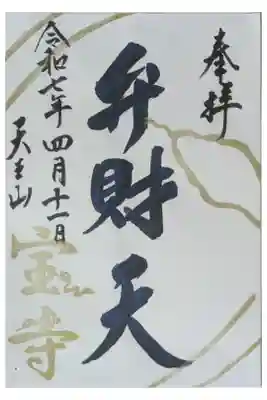 奉拝
弁財天
令和七年四月十一日
天王山
宝寺